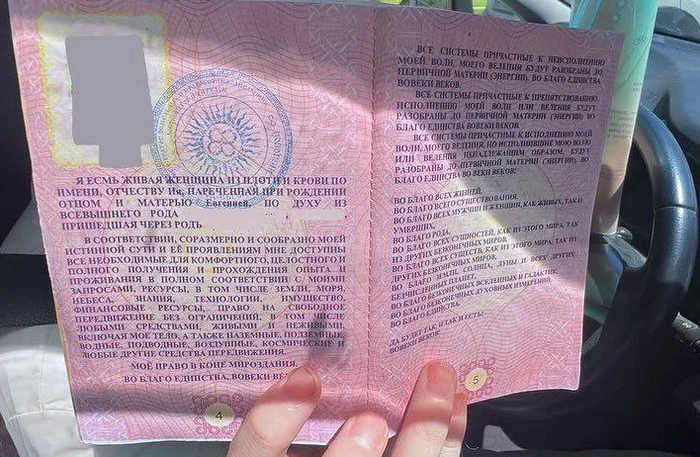 Я ЕСМЬ ЖИВАЯ ЖЕНЩИНА ИЗ ПЛОТИ И КРОВИ ПО
ИМЕНИ, ОТЧЕСТВУ Ия, НАРЕЧЕННАЯ ПРИ РОЖДЕНИИ
ОТЦОМ И МАТЕРЬЮ Евгенией, ПО ДУХУ ИЗ
ВСЕВЫШНЕГО РОДА
ПРИШЕДШАЯ ЧЕРЕЗ РОДЪ
В СООТВЕТСТВИИ, СОРАЗМЕРНО И СООБРАЗНО МОЕЙ
ИСТИННОЙ СУТИ И ЕЁ ПРОЯВЛЕНИЯМ МНЕ ДОСТУПНЫ
ВСЕ НЕОБХОДИМЫЕ ДЛЯ КОМФОРТНОГО, ЦЕЛОСТНОГО И
ПОЛНОГО ПОЛУЧЕНИЯ И ПРОХОЖДЕНИЯ ОПЫТА И
ПРОЖИВАНИЯ В ПОЛНОМ СООТВЕТСТВИИ С МОИМИ
ЗАПРОСАМИ, РЕСУРСЫ, В ТОМ ЧИСЛЕ ЗЕМЛИ, МОРЯ,
НЕБЕСА, ЗНАНИЯ, ТЕХНОЛОГИИ, ИМУЩЕСТВО,
ФИНАНСОВЫЕ РЕСУРСЫ, ПРАВО НА СВОБОДНОЕ
ПЕРЕДВИЖЕНИЕ БЕЗ ОГРАНИЧЕНИЙ, В ТОМ ЧИСЛЕ
ЛЮБЫМИ СРЕДСТВАМИ, ЖИВЫМИ И НЕЖИВЫМИ,
ВКЛЮЧАЯ МОЕ ТЕЛО, А ТАКЖЕ НАЗЕМНЫЕ, ПОДЗЕМНЫЕ,
ВОДНЫЕ, ПОДВОДНЫЕ, ВОЗДУШНЫЕ, КОСМИЧЕСКИЕ И
ЛЮБЫЕ ДРУГИЕ СРЕДСТВА ПЕРЕДВИЖЕНИЯ.
МОЁ ПРАВО В КОНЕ МИРОЗДАНИЯ.
ВО БЛАГО ЕДИНСТВА, ВОВЕКИ
4
ВСЕ СИСТЕМЫ ПРИЧАСТНЫЕ К НЕИСПОЛНЕНИЮ
МОЕЙ ВОЛИ, МОЕГО ВЕЛЕНИЯ БУДУТ РАЗОБРАНЫ ДО
ПЕРВИЧНОЙ МАТЕРИИ (ЭНЕРГИИ) ВО БЛАГО ЕДИНСТВА
ВОВЕКИ ВЕКОВ.
ВСЕ СИСТЕМЫ ПРИЧАСТНЫЕ К ПРЕПЯТСТВОВАНИЮ
ИСПОЛНЕНИЮ МОЕЙ ВОЛИ ИЛИ ВЕЛЕНИЯ БУДУТ
РАЗОБРАНЫ ДО ПЕРВИЧНОЙ МАТЕРИИ (ЭНЕРГИИ) ВО
БЛАГО ЕДИНСТВА ВОВЕКИ ВЕКОВ.
ВСЕ СИСТЕМЫ ПРИЧАСТНЫЕ К ИСПОЛНЕНИЮ МОЕЙ
ВОЛИ, МОЕГО ВЕЛЕНИЯ, НО ИСПОЛНИВШИЕ МОЮ ВОЛЮ
ИЛИ ВЕЛЕНИЯ НЕНАДЛЕЖАЩИМ ОБРАЗОМ, БУДУТ
РАЗОБРАНЫ ДО ПЕРВИЧНОЙ МАТЕРИИ (ЭНЕРГИИ) ВО
БЛАГО ЕДИНСТВА ВОВЕКИ ВЕКОВ!
ВО БЛАГО ВСЕХ ЖИЗНЕЙ,
ВО БЛАГО ВСЕГО СУЩЕСТВОВАНИЯ,
ВО БЛАГО ВСЕХ МУЖЧИН И ЖЕНЩИН, КАК ЖИВЫХ, ТАК И
УМЕРШИХ,
ВО БЛАГО РОДА,
ВО БЛАГО ВСЕХ СУЩНОСТЕЙ, КАК ИЗ ЭТОГО МИРА, ТАК
ИЗ ДРУГИХ БЕЗКОНЕЧНЫХ МИРОВ,
ВО БЛАГО ВСЕХ СУЩЕСТВ, КАК ИЗ ЭТОГО МИРА, ТАК ИЗ
ДРУГИХ БЕЗКОНЕЧНЫХ МИРОВ,
ВО БЛАГО ЗЕМЛИ, СОЛНЦА, ЛУНЫ И ВСЕХ ДРУГИХ
БЕЗЧИСЛЕННЫХ ПЛАНЕТ,
ВО БЛАГО БЕЗКОНЕЧНЫХ ВСЕЛЕННЫХ И ГАЛАКТИК,
ВО БЛАГО БЕЗКОНЕЧНЫХ ДУХОВНЫХ ИЗМЕРЕНИЙ,
ВО БЛАГО ЕДИНСТВА.
ДА БУДЕТ ТАК И ТАК И ЕСТЬ!
ВОВЕКИ ВЕКОВ!
5